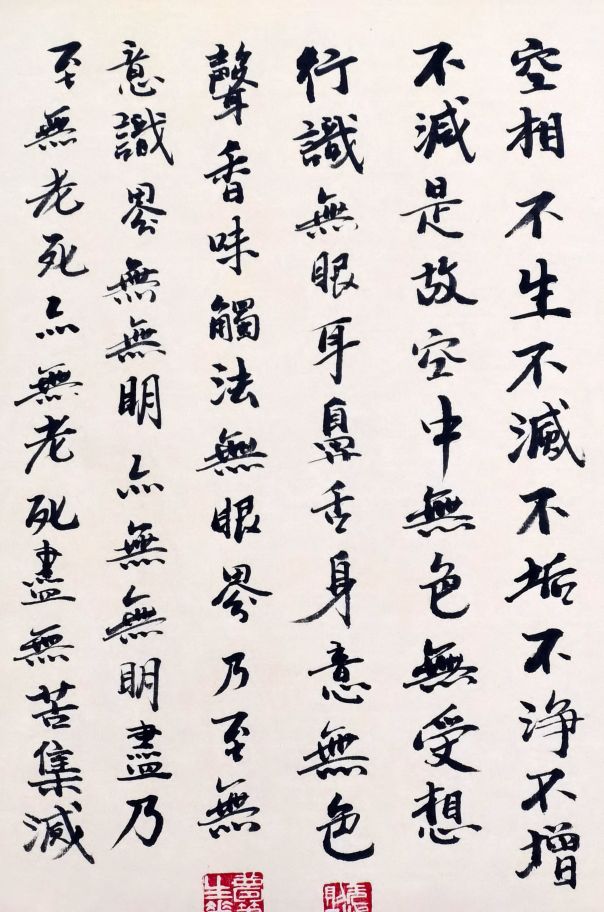 空相不生不滅不垢不浄不增
不減是故空中無色無受想
行識無眼耳鼻舌身意無色
聲香味觸法無眼界乃至無
意識界無無明亦無無明盡乃
至無老死亦無老死盡無苦集滅